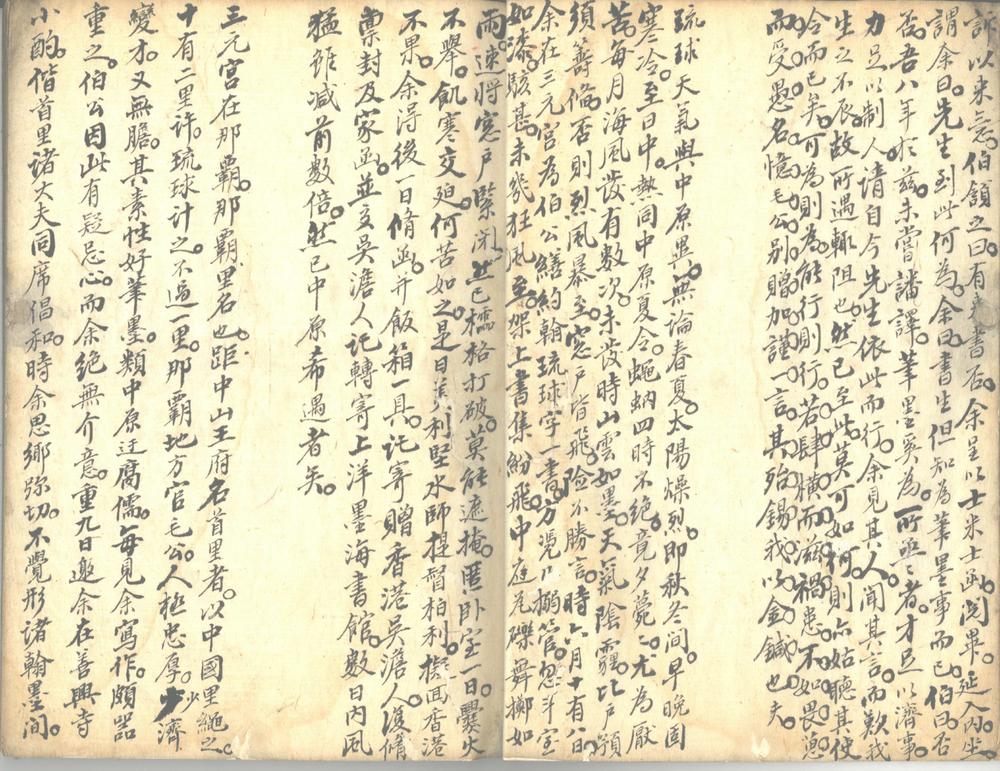 訴以来意。伯頷之曰。有書否。余呈以士米士函。閱畢。延入內坐。
謂余曰。先生到此何為。余曰。書生但知為筆墨事而已。伯曰。否
否。吾八年於茲。未嘗譒譯。筆墨奚為。所亟亟者。才足以濟事。
力足以制人。請自今先生依此而行。余見其人。聞其言。而歎我
生之不辰。故所遇輒阻也。然已至此。莫可如何。則亦姑聽其使
令而已矣。可為則為。能行則行。若肆橫而滋禍患。不如畏葸
而受愚名。憶毛公別贈加謹一言。其殆錫我以金鍼也夫。
琉球天氣與中原異。無論春夏。太陽燥烈。即秋冬間。早晚固
寒冷。至日中。熱同中原夏令。蠅蚋四時不絕。竟夕薨薨。尤為厭
苦。每月海風發有數次。未發時山雲如墨。天氣陰霾。比戶預
須籌備。否則烈風暴至。窓戶皆飛。險不勝言。時六月十有八日。
余在三元宮為伯公繕約翰琉球字一書。方凭几搦管。忽斗室
如漆。駭甚。未幾狂風至。架上書集紛飛。中庭瓦礫舞擲如
雨。速將窓戶緊閉。然已櫺格打破。莫能遮掩。匿臥室一日。爨火
不舉。飢寒交廹。何苦如之。是日英利堅水師提督柏利。撫回香港
不果。余得後一日脩函。并飯箱一具。託寄贈香港吳澹人。復脩
稟封及家函。並交吳澹人託轉寄上洋墨海書館。數日內風
猛雖減前數倍。然已中原希遇者矣。
三元宮在那霸。那霸里名也。距中山王府名首里者。以中國里繩之。
十有二里許。琉球計之。不過一里。那霸地方官毛公。人極忠厚。少濟
變才。又無膽。其素性好筆墨。類中原迂腐儒。每見余寫作。頗器
重之。伯公因此有疑忌心。而余絕無介意。重九日邀余在善興寺
小酌。偕首里諸大夫同席倡和。時余思鄉弥切。不覺形諸翰墨間。